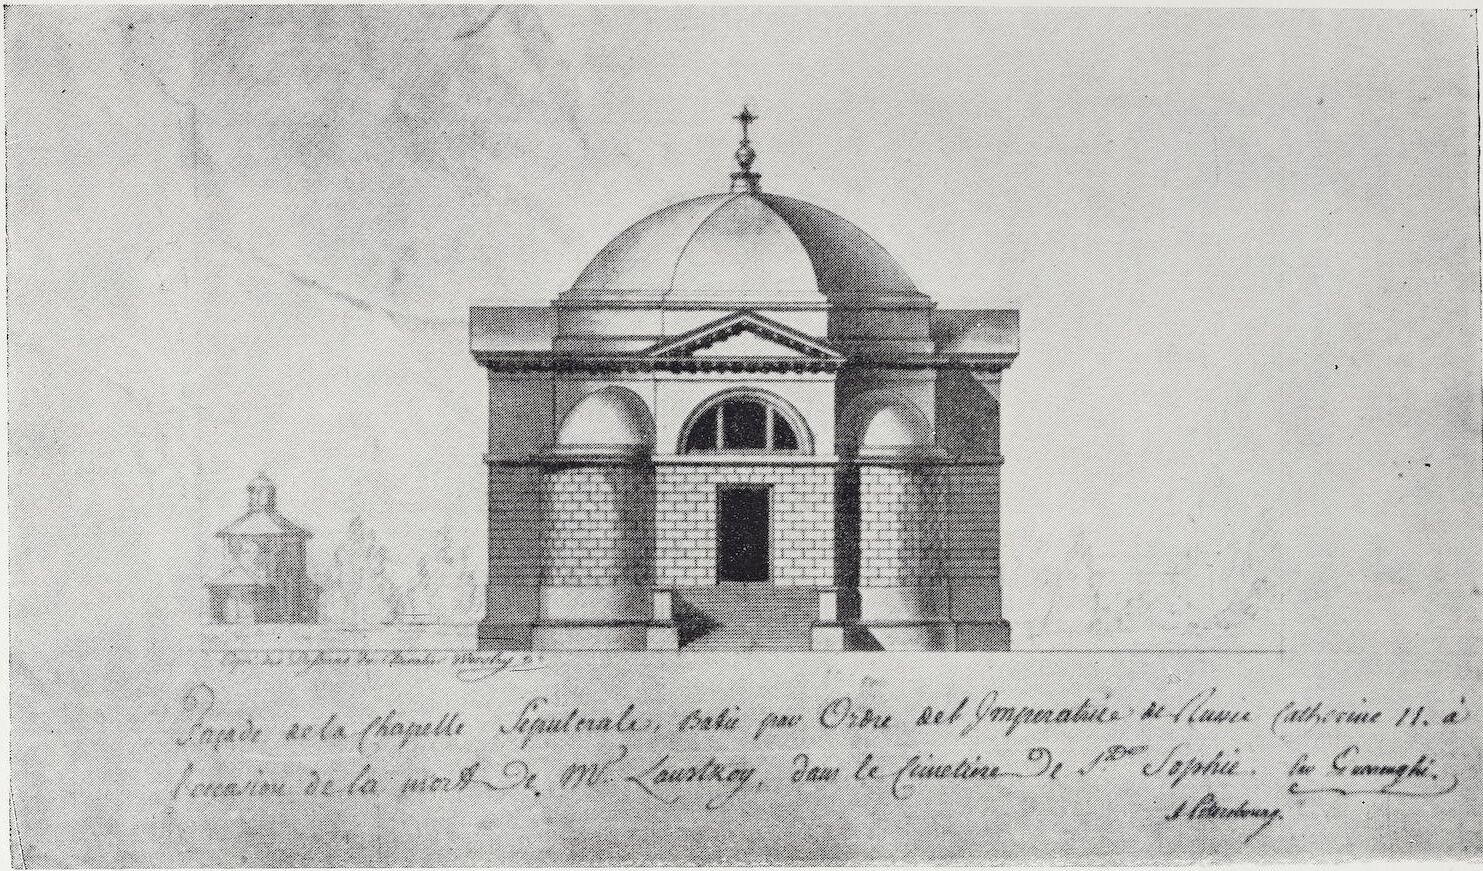 Copié des Dessins du Chevalier
Façade de la Chapelle Sepulcrale, Batie par Ordre de l'Imperatrice de Russie Catherine II. à
l'occasion de la mort de Mr. Lanskoy, dans le Cimetiere de Ste Sophie. Par Guarenghi.
à Petersbourg.